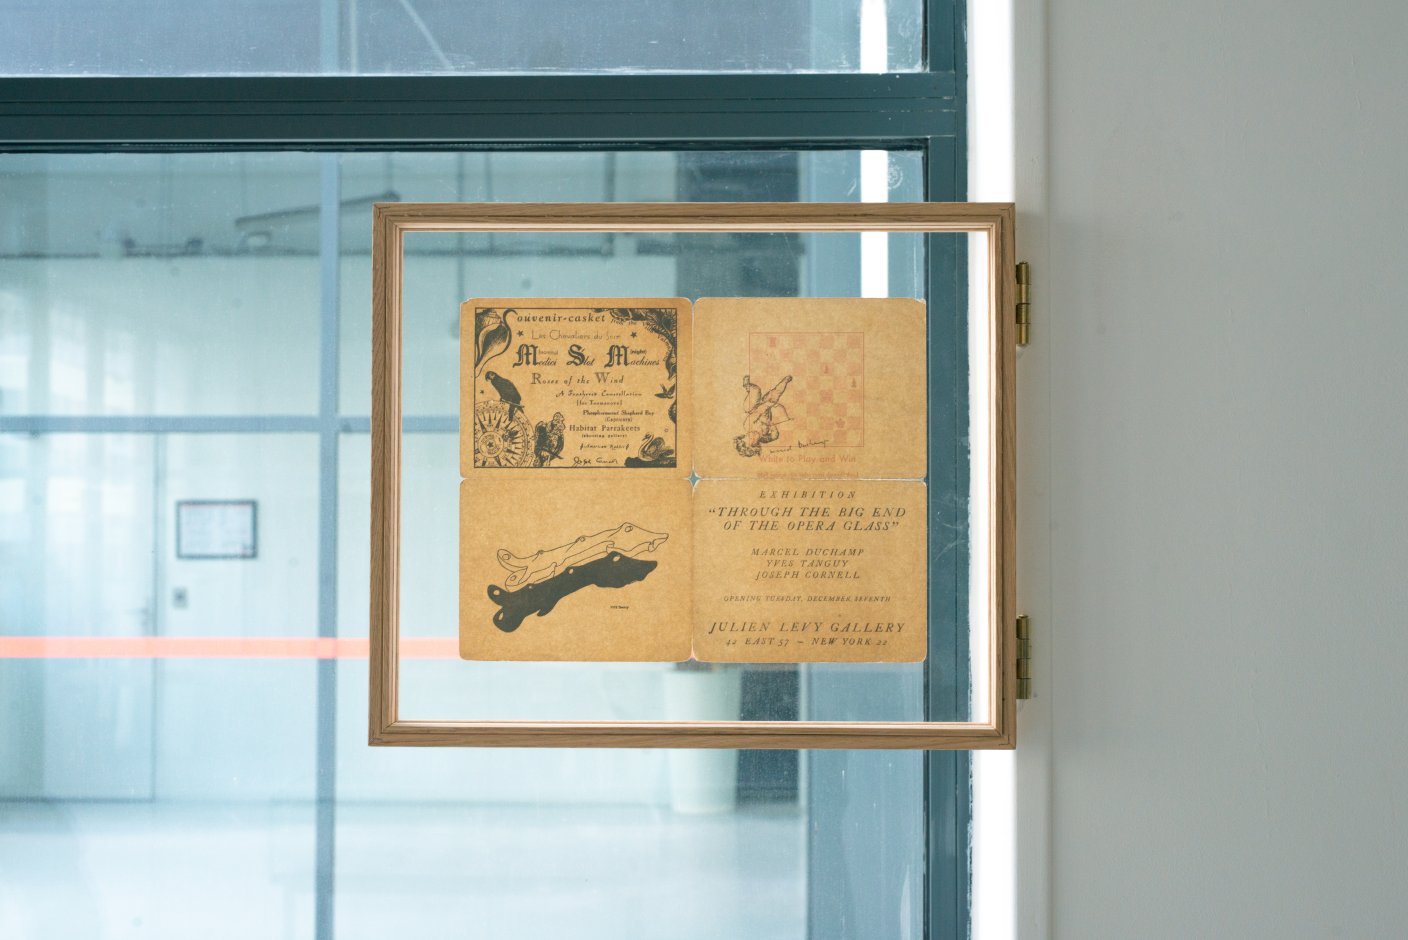 Souvenir-casket
Les Chevaliers du
Medici Slot Machines
(night)
Roses of the Wind
A Feathered Constellation
(for Toumanova)
Phosphorescent Shepherd Boy
Habitat Parrakeets
(shooting gallery)
Joseph Cornell
marcel duchamp
White to Play and Win
YVES Tanguy
EXHIBITION
“THROUGH THE BIG END
OF THE OPERA GLASS”
MARCEL DUCHAMP
YVES TANGUY
JOSEPH CORNELL
OPENING TUESDAY, DECEMBER SEVENTH
JULIEN LEVY GALLERY
42 EAST 57 – NEW YORK 22